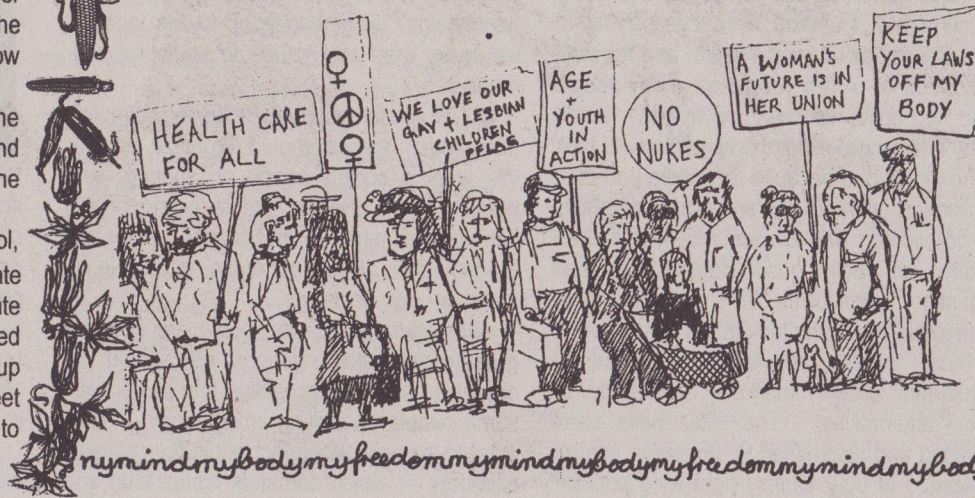 he
ow
he
nd
he
ol,
ate
ute
ed
up
eet
to
HEALTH CARE
FOR ALL
♀
☮
♀
WE LOVE OUR
GAY + LESBIAN
CHILDREN
PFLAG
AGE
+
YOUTH
IN
ACTION
NO
NUKES
A WOMAN'S
FUTURE IS IN
HER UNION
KEEP
YOUR LAWS
OFF MY
BODY
nymindmybodymyfreedommymindmybodymyfreedommymindmybod